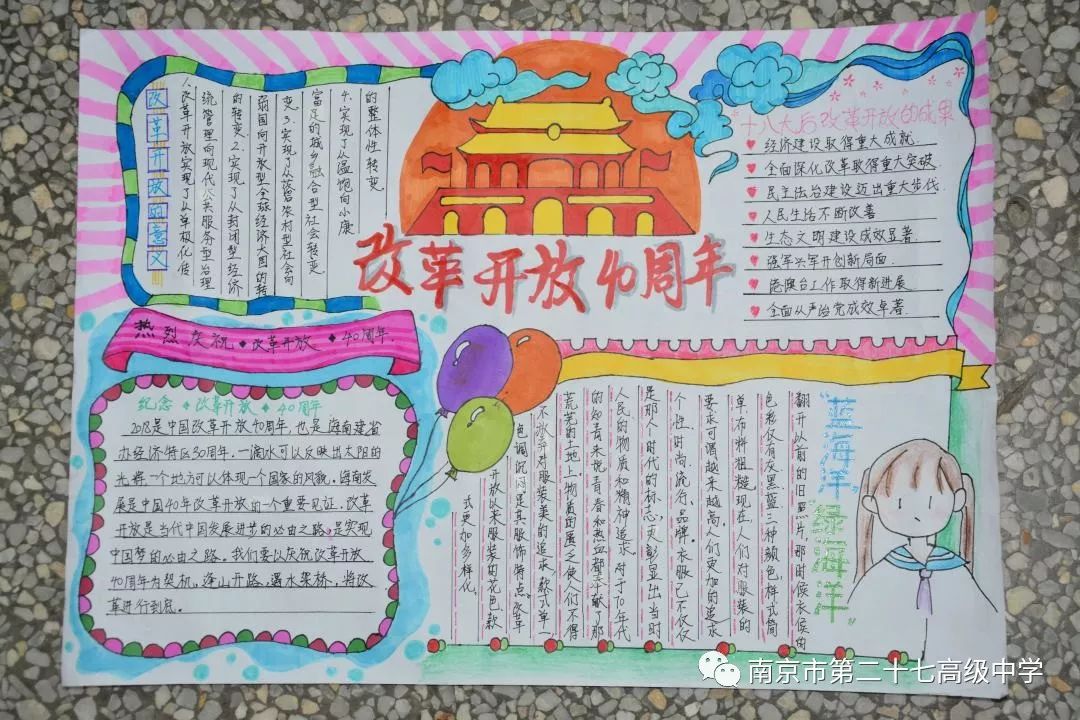 改革开放的意义
1.改革开放实现了从单极化传
统管理向现代公共服务型治理
的转变2.实现了从封闭型经济
弱国向开放型全球经济大国的转
变3.实现了从落后农村型社会向
富足的城乡融合型社会转变
4.实现了从温饱向小康
的整体性转变
改革开放40周年
十八大后改革开放的成果
经济建设取得重大成就.
全面深化改革取得重大突破.
民主法治建设迈出重大步伐
人民生活不断改善
生态文明建设成效显著.
强军兴军开创新局面.
港澳台工作取得新进展
全面从严治党成效卓著.
热烈庆祝改革开放40周年.
纪念改革开放40周年
2018是中国改革开放40周年,也是海南建省
办经济特区30周年.一滴水可以反映出太阳的
光辉.一个地方可以体现一个国家的风貌.海南发
展是中国40年改革开放的一个重要见证.改革
开放是当代中国发展进步的必由之路,是实现
中国梦的必由之路。我们要以庆祝改革开放
40周年为契机,逢山开路,遇水架桥,将改
革进行到底。
"蓝海洋,绿海洋"
翻开以前的旧照片,那时候衣候的
色彩仅有灰黑蓝三种颜色,样式简
单,布料粗糙现在,人们对服装的
要求可谓越来越高,人们更加的追求
个性,时尚,流行,品牌。衣服已不仅仅
是那个时代的标志,更彰显出当时
人民的物质和精神追求.对于70年代
的知青来说,青春和热血都奉献了那
荒芜的土地上,物质的匮乏使人们不得
不放弃对服装美的追求,款式单一
色调沉闷是其服饰特点。改革
开放以来服装的花色款
式更加多样化。
南京市第二十七高级中学